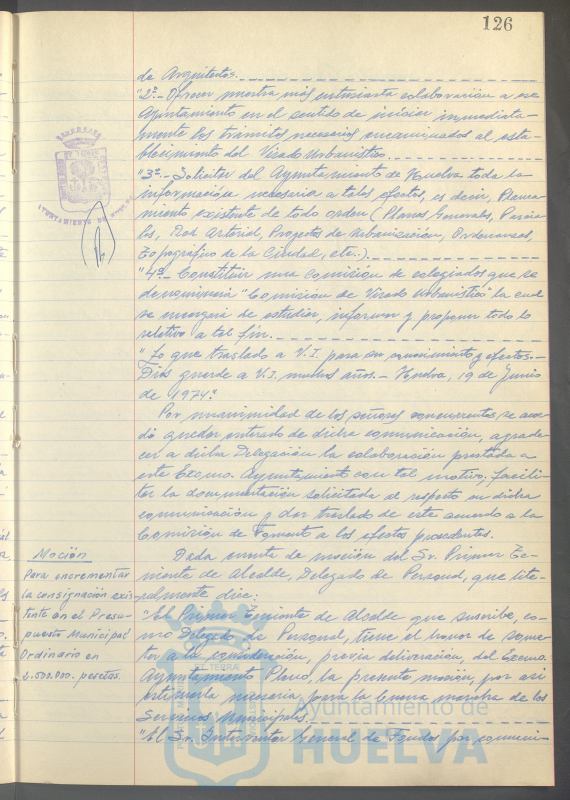 126
de Arquitectos.
"2º.- Ofrecer nuestra más entusiasta colaboración a ese
Ayuntamiento en el sentido de iniciar inmediata-
mente los trámites necesarios encaminados al esta-
blecimiento del Visado Urbanístico.
"3º.- Solicitar del Ayuntamiento de Huelva toda la
información necesaria a tales efectos, es decir, Planea-
miento existente de todo orden (Planos Generales, Parcia-
les, Red Arterial, Proyectos de Urbanización, Ordenanzas,
Topográfico de la Ciudad, etc.).
"4º.- Constituir una Comisión de colegiados que se
denominaría "Comisión de Visado Urbanístico" la cual
se encargaría de estudiar, informar y proponer todo lo
relativo a tal fin.
"Lo que traslado a V.I. para su conocimiento y efectos.-
Dios guarde a V.I. muchos años.- Huelva, 19 de Junio
de 1974".
Por unanimidad de los señores concurrentes se acor-
dó quedar enterado de dicha comunicación, agrade-
cer a dicha Delegación la colaboración prestada a
este Excmo. Ayuntamiento con tal motivo, facili-
tar la documentación solicitada al respecto en dicha
comunicación y dar traslado de este acuerdo a la
Comisión de Fomento a los efectos procedentes.
Moción
Para encrementar
la consignación exis-
tente en el Presu-
puesto Municipal
Ordinario en
2.500.000. pesetas.
Dada cuenta de moción del Sr. Primer Te-
niente de Alcalde, Delegado de Personal, que lite-
ralmente dice:
"El Primer Teniente de Alcalde que suscribe, co-
mo Delegado de Personal, tiene el honor de some-
ter a la consideración, previa deliberación, del Excmo.
Ayuntamiento Pleno, la presente moción, por así
estimarla necesaria, para la buena marcha de los
Servicios Municipales.
"El Sr. Interventor General de Fondos por comunica-
Ayuntamiento de
HUELVA